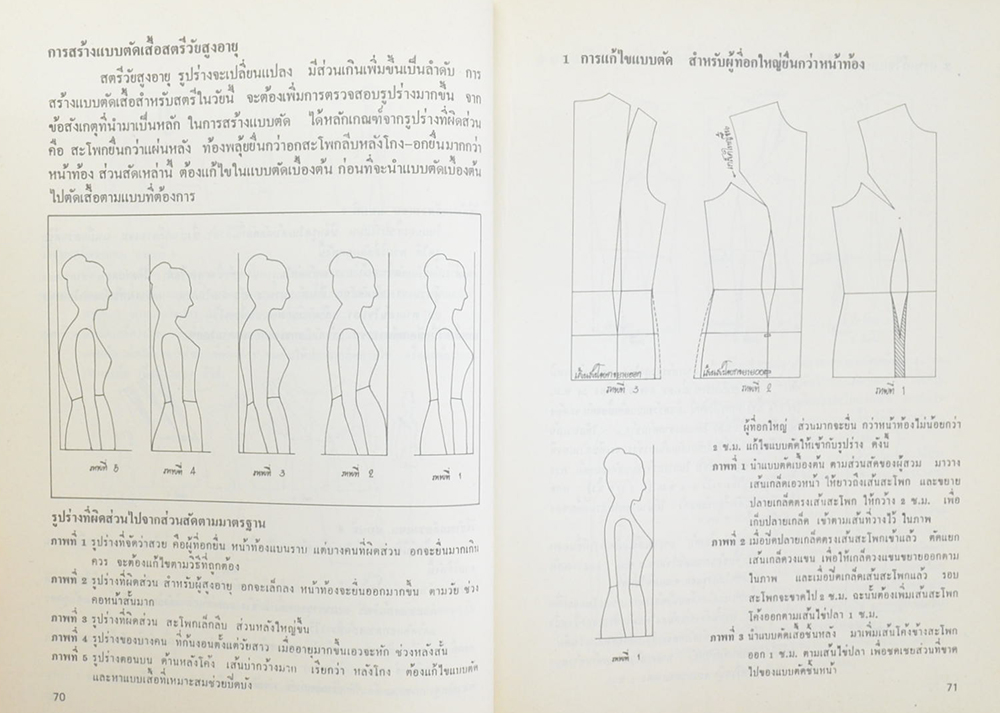 การสร้างแบบตัดเสื้อสตรีวัยสูงอายุ
สตรีวัยสูงอายุ รูปร่างจะเปลี่ยนแปลง มีส่วนเกินเพิ่มขึ้นเป็นลำดับ การ
สร้างแบบตัดเสื้อสำหรับสตรีในวัยนี้ จะต้องเพิ่มการตรวจสอบรูปร่างมากขึ้น จาก
ข้อสังเกตุที่นำมาเป็นหลัก ในการสร้างแบบตัด ได้หลักเกณฑ์จากรูปร่างที่ผิดส่วน
คือ สะโพกยื่นกว่าแผ่นหลัง ท้องพลุ้ยยื่นกว่าอกสะโพกลีบหลังโกง-อกยื่นมากกว่า
หน้าท้อง ส่วนสัดเหล่านี้ ต้องแก้ไขในแบบตัดเบื้องต้น ก่อนที่จะนำแบบตัดเบื้องต้น
ไปตัดเสื้อตามแบบที่ต้องการ
ภาพที่ 5
ภาพที่ 4
ภาพที่ 3
ภาพที่ 2
ภาพที่ 1
รูปร่างที่ผิดส่วนไปจากส่วนสัดตามมาตรฐาน
ภาพที่ 1 รูปร่างที่จัดว่าสวย คือผู้ที่อกยื่น หน้าท้องแบนราบ แต่บางคนที่ผิดส่วน อกจะยื่นมากเกิน
ควร จะต้องแก้ไขตามวิธีที่ถูกต้อง
ภาพที่ 2 รูปร่างที่ผิดส่วน สำหรับผู้สูงอายุ อกจะเล็กลง หน้าท้องจะยื่นออกมากขึ้น ตามวัย ช่วง
คอหน้าสั้นมาก
ภาพที่ 3 รูปร่างที่ผิดส่วน สะโพกเล็กลีบ ส่วนหลังใหญ่ขึ้น
ภาพที่ 4 รูปร่างของบางคน ที่ก้นงอนตั้งแต่วัยสาว เมื่ออายุมากขึ้นเอวจะหัก ช่วงหลังสั้น
ภาพที่ 5 รูปร่างตอนบน ด้านหลังโค้ง เส้นบ่ากว้างมาก เรียกว่า หลังโกง ต้องแก้ไขแบบตัด
และหาแบบเสื้อที่เหมาะสมช่วยปิดบัง
70
1 การแก้ไขแบบตัด สำหรับผู้ที่อกใหญ่ยื่นกว่าหน้าท้อง
ภาพที่ 3
ภาพที่ 2
ภาพที่ 1
ผู้ที่อกใหญ่ ส่วนมากจะยื่น กว่าหน้าท้องไม่น้อยกว่า
2 ซ.ม. แก้ไขแบบตัดให้เข้ากับรูปร่าง ดังนี้
ภาพที่ 1 นำแบบตัดเบื้องต้น ตามส่วนสัดของผู้สวม มาวาง
เส้นเกล็ดเอวหน้า ให้ยาวถึงเส้นสะโพก และขยาย
ปลายเกล็ดตรงเส้นสะโพก ให้กว้าง 2 ซ.ม. เพื่อ
เก็บปลายเกล็ด เข้าตามเส้นที่วางไว้ ในภาพ
ภาพที่ 2 เมื่อปิดปลายเกล็ดตรงเส้นสะโพกเข้าแล้ว ตัดแยก
เส้นเกล็ดวงแขน เพื่อให้เกล็ดวงแขนขยายออกตาม
ในภาพ และเมื่อปิดเกล็ดเส้นสะโพกแล้ว รอบ
สะโพกจะขาดไป 2 ซ.ม. ฉะนั้นต้องเพิ่มเส้นสะโพก
โค้งออกตามเส้นไข่ปลา 1 ซ.ม.
ภาพที่ 3 นำแบบตัดเสื้อชิ้นหลัง มาเพิ่มเส้นโค้งข้างสะโพก
ออก 1 ซ.ม. ตามเส้นไข่ปลา เพื่อชดเชยส่วนที่ขาด
ไปของแบบตัดชิ้นหน้า
ภาพที่ 1
71